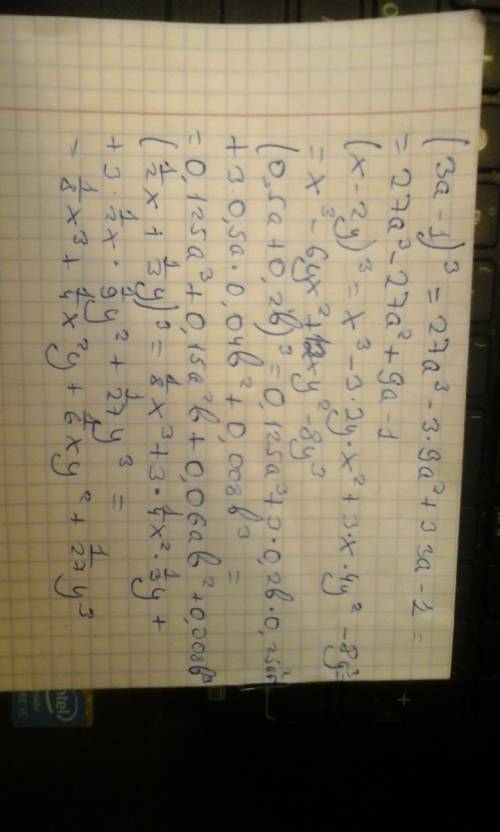 (3a - 1)³ = 27a³ - 3·9a² + 3 3a - 1 =
= 27a³ - 27a² + 9a - 1
(x - 2y)³ = x³ - 3·2y·x² + 3·x·4y² - 8y³ =
= x³ - 6yx² + 12xy² - 8y³
(0,5a + 0,2b)³ = 0,125a³ + 3·0,2b·0,25a² +
+ 3 0,5a·0,04b² + 0,008b³ =
= 0,125a³ + 0,15a²b + 0,06ab² + 0,008b³
(1/2x + 1/3y)³ = 1/8x³ + 3·1/4x²·1/3y +
+ 3·1/2x·1/9y² + 1/27y³ =
= 1/8x³ + 1/4x²y + 1/6xy² + 1/27y³
intel